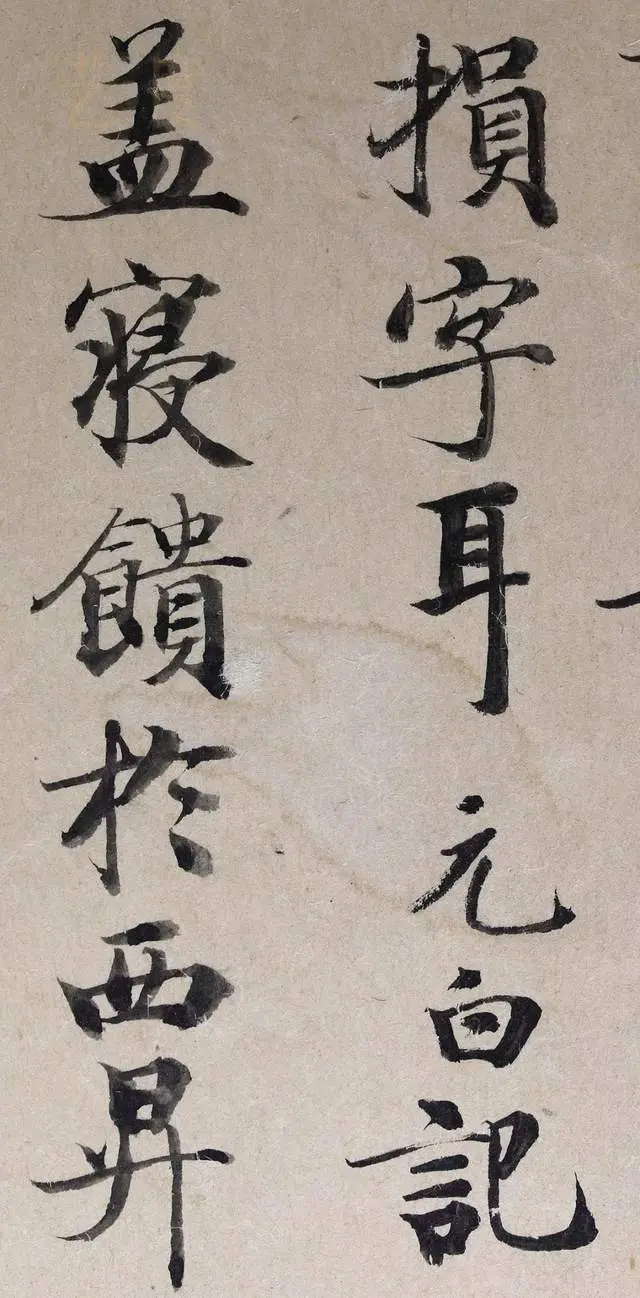 損字耳 元白記
盖寢饋於西昇